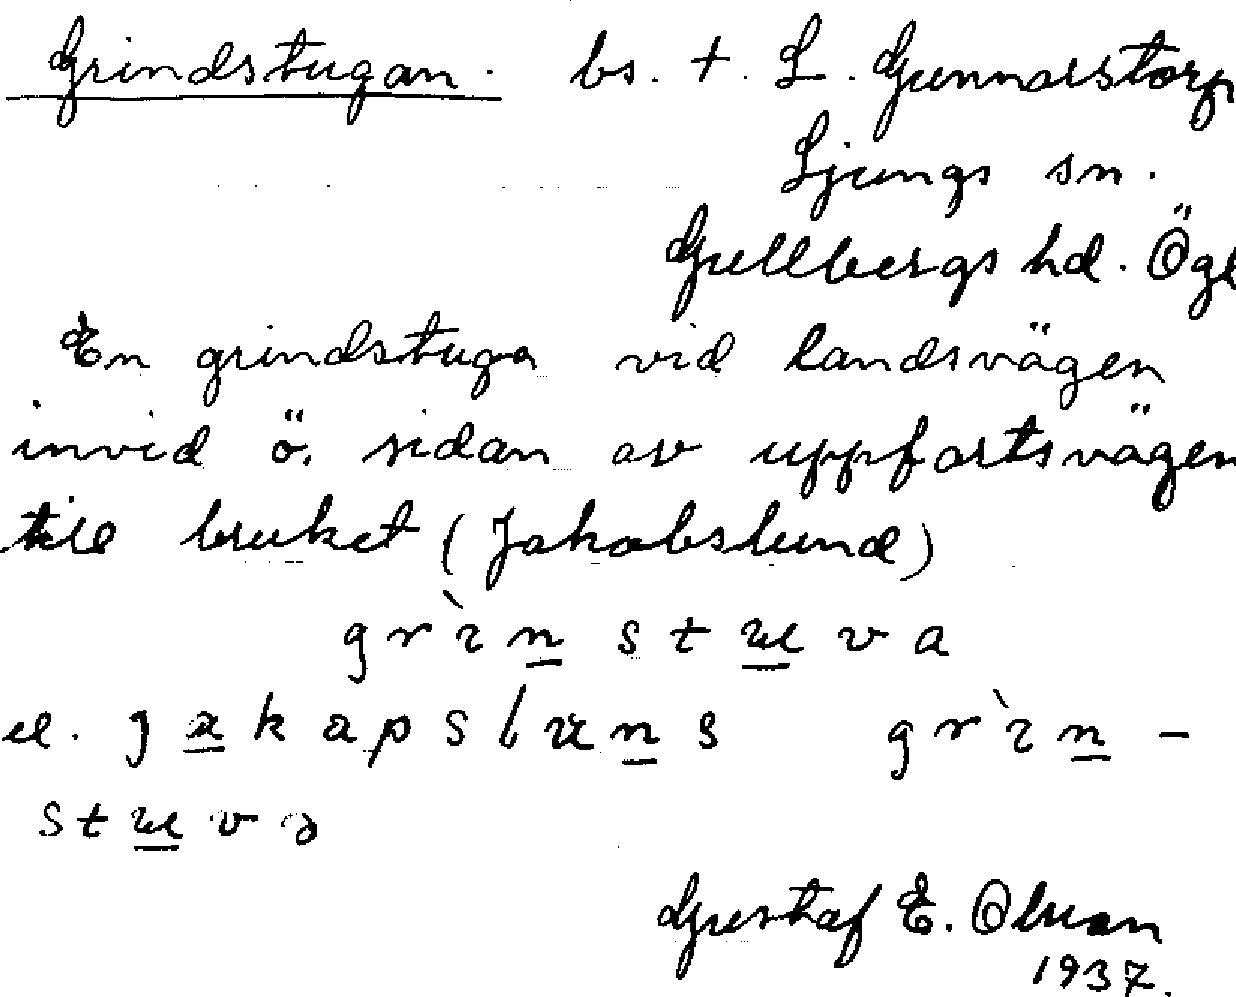 Grindstugan. bs. t. L. Gunnarstorp
Ljungs sn.
Gullbergs hd. Ögl
En grindstuga vid landsvägen
invid ö. sidan av uppfartsvägen
till bruket (Jakobslund)
grìn stuva
el. jakapsluns grìn-
stuvə
Gustaf E. Olsson
1937.